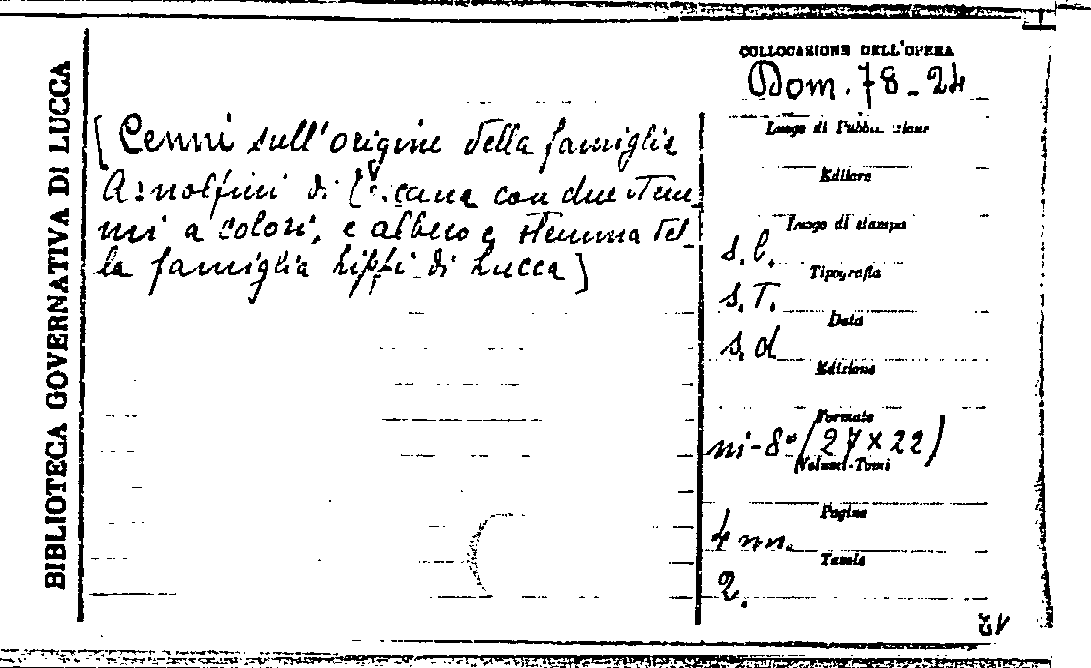 BIBLIOTECA GOVERNATIVA DI LUCCA
[ Cenni sull'origine della famiglia
Arnolfini di con due stem
mi a colori, e albero e stemma del
la famiglia Lippi di Lucca ]
COLLOCAZIONE DELL'OPERA
Dom. 78-24
Luogo di Pubblicazione
Editore
Luogo di stampa
s.l.
Tipografia
s.T.
Data
s.d
Edizione
Formato
in-8° (27×22)
Volumi-Tomi
Pagine
4 nn.
Tavole
2.